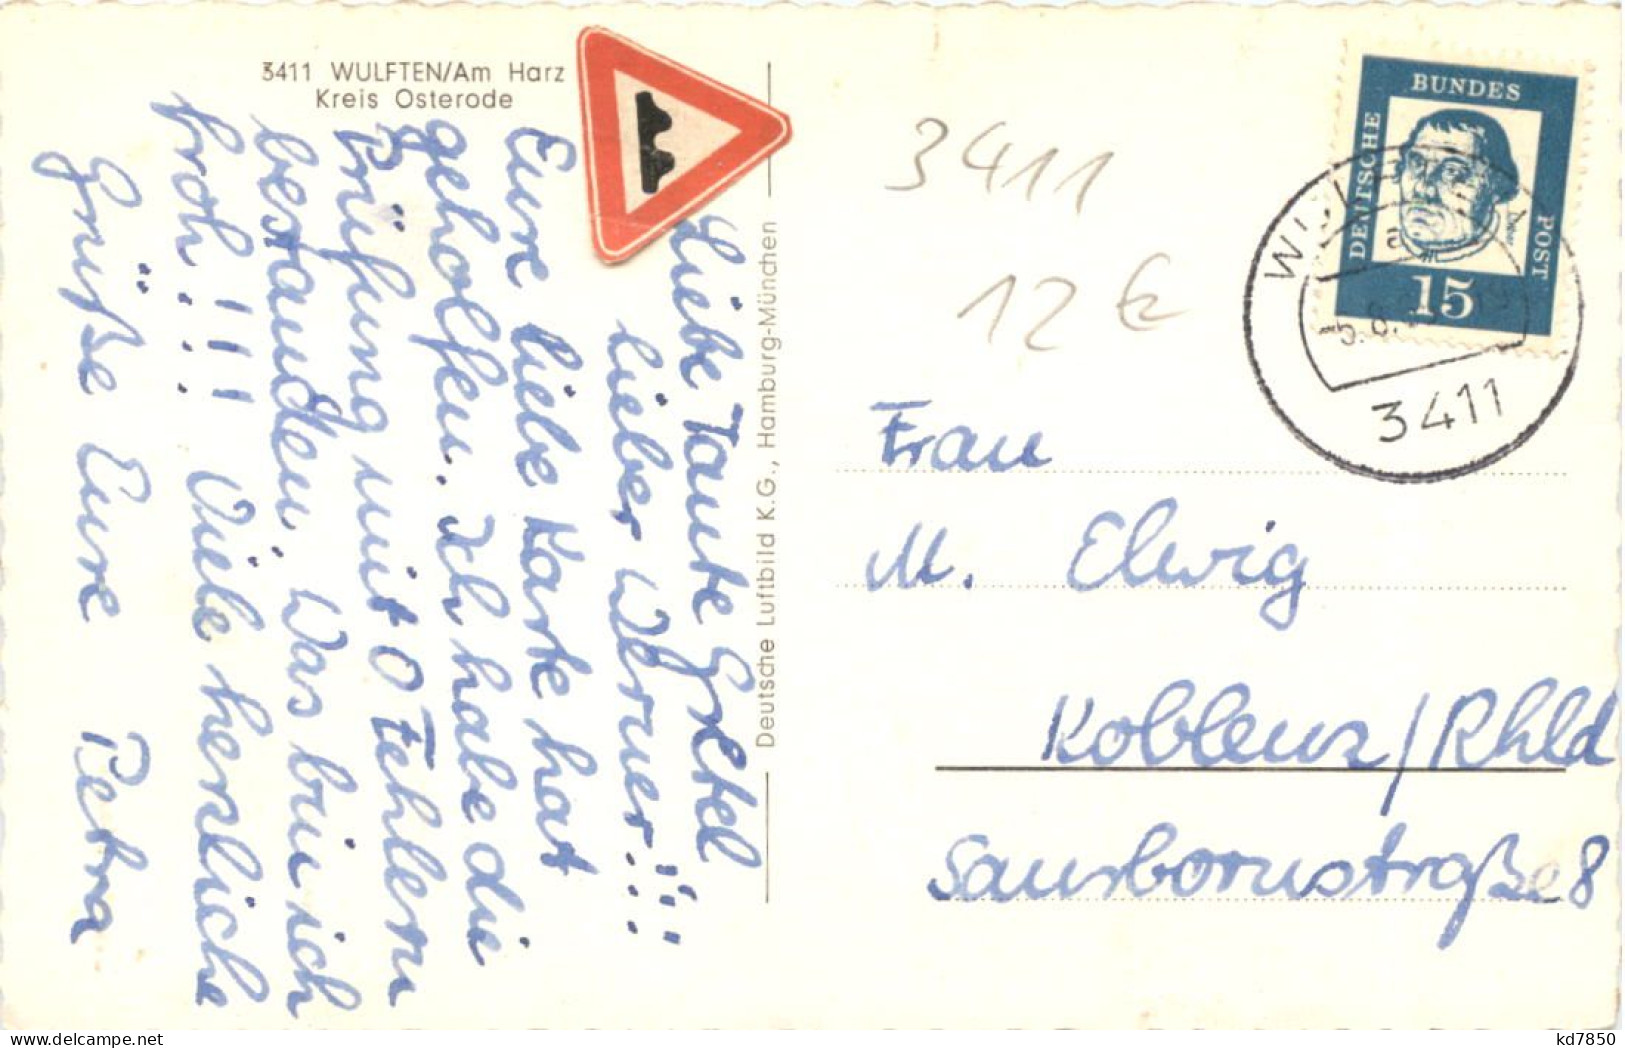 3411 WULFTEN/Am Harz
Kreis Osterode
Liebe Tante Gretel
lieber Werner!!!
Eure liebe Karte hat
geholfen. Ich habe die
Prüfung mit 0 Fehlern
bestanden. Was bin ich
froh!!! Viele herzliche
Grüße Eure Petra
Deutsche Luftbild K.G., Hamburg-München
3411
12 €
DEUTSCHE
BUNDES
POST
15
3411
Frau
M. Elwig
Koblenz/Rhld
Saurbornstraße 8
kd7850